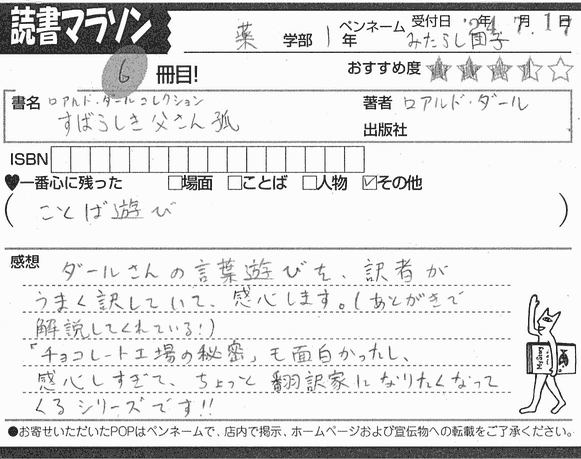 読書マラソン
薬 学部 1 年
ペンネーム みたらし団子
受付日 '24年 7月 1日
6 冊目!
おすすめ度
書名 ロアルド・ダールコレクション
すばらしき父さん狐
著者 ロアルド・ダール
出版社
ISBN
♥一番心に残った □場面 □ことば □人物 ☑その他
(ことば遊び)
感想 ダールさんの言葉遊びを、訳者が
うまく訳していて、感心します。(あとがきで
解説してくれている!)
「チョコレート工場の秘密」も面白かったし、
感心しすぎて、ちょっと翻訳家になりたくなって
くるシリーズです!!
●お寄せいただいたPOPはペンネームで、店内で掲示、ホームページおよび宣伝物への転載をご了承ください。